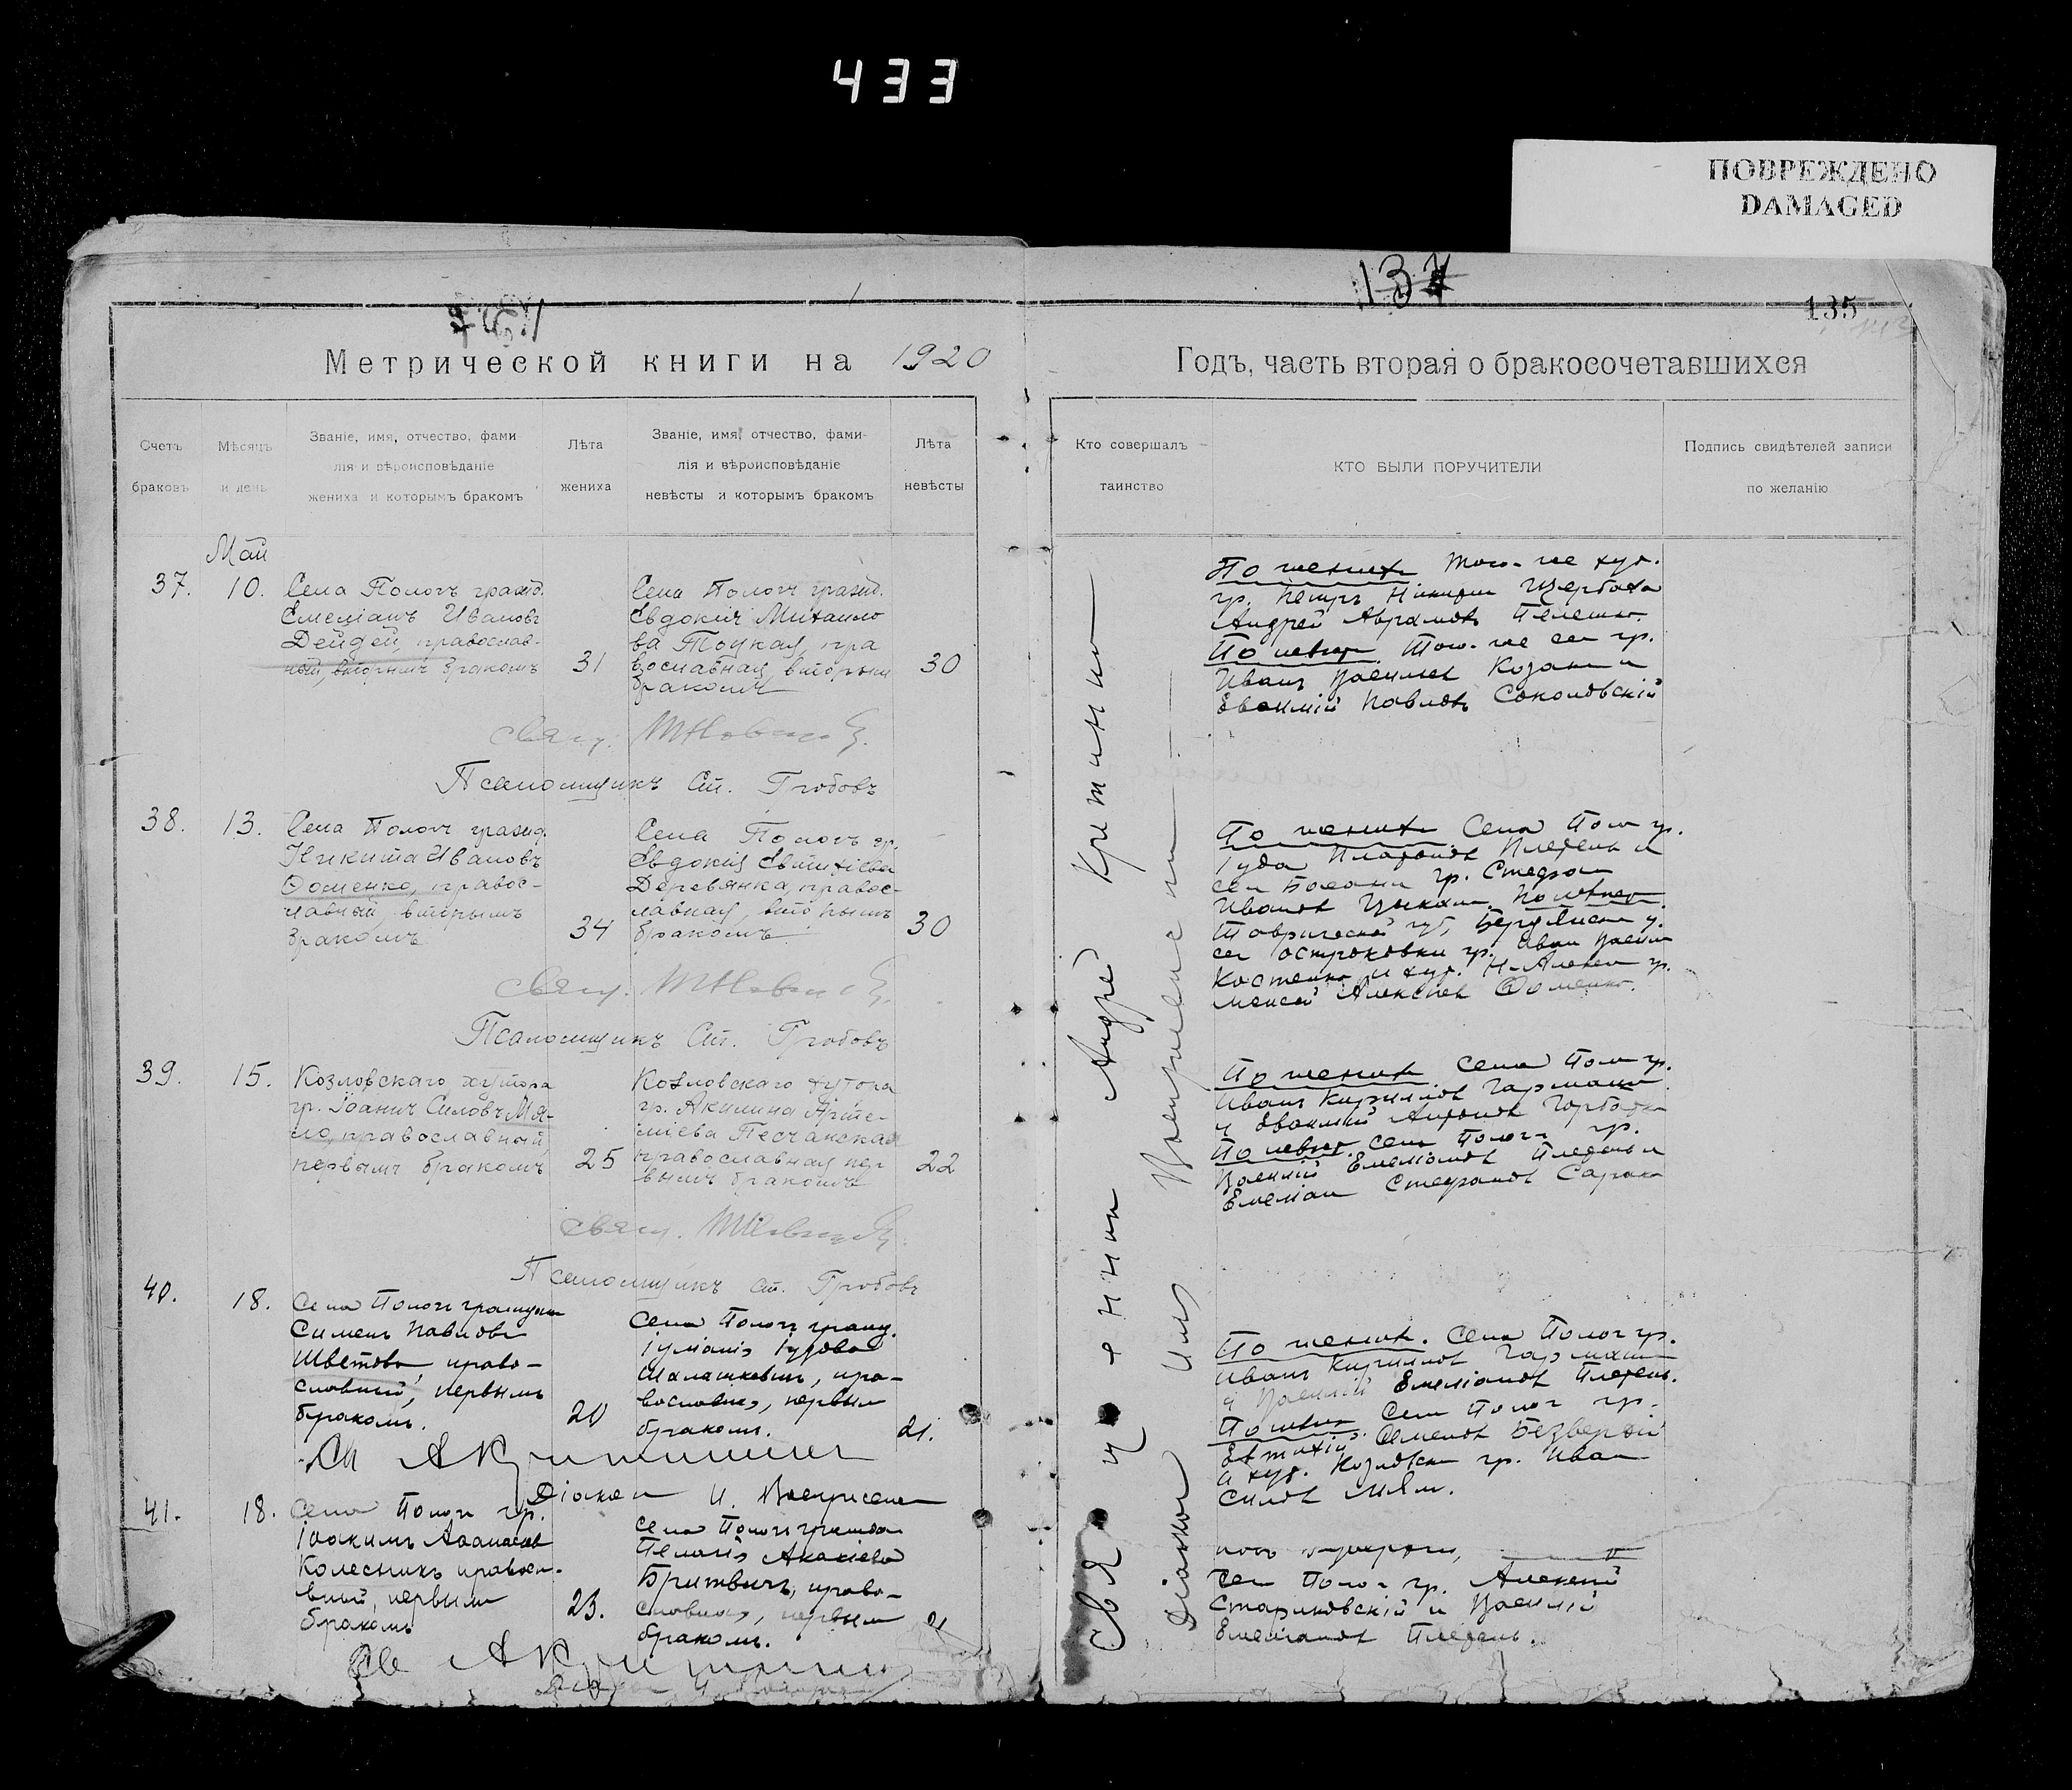 433
ПОВРЕЖДЕНО
DAMAGED
137
135
Метрической книги на 1920
Годъ, часть вторая о бракосочетавшихся
Счетъ
браковъ
Мѣсяцъ
и день
Званіе, имя, отчество, фами-
лія и вѣроисповѣданіе
жениха и которымъ бракомъ
Лѣта
жениха
Званіе, имя, отчество, фами-
лія и вѣроисповѣданіе
невѣсты и которымъ бракомъ
Лѣта
невѣсты
Кто совершалъ
таинство
КТО БЫЛИ ПОРУЧИТЕЛИ
Подпись свидѣтелей записи
по желанію
Май
37. 10.
Села Пологъ гражд.
Емеліанъ Ивановъ
Дейдей, православ-
ный, вторымъ бракомъ
31
Села Пологъ гражд.
Евдокія Михаило
ва Тоцкая, пра
вославная, вторымъ
бракомъ
30
По жениху того-же хут.
гр. Петръ Никифор Щербаха
Андрей Аврамовъ Пелешко.
По невѣст. Того-же сел гр.
Иванъ Васильев Козак и
Евфимій Павловъ Соколовскій
свящ.
Псаломщикъ Ст. Гробовъ
38. 13.
Села Пологъ гражд.
Никита Ивановъ
Фоменко, правос-
лавный, вторымъ
бракомъ
34
Села Пологъ гр.
Евдокія Евтихіева
Деревянка, правос-
лавная, вторымъ
бракомъ
30
По жениху Села Полог гр.
Іуда Платонов Плетень и
гр. Стефан
Иванов
Таврической губ, Бердянск у.
гр. Иван Васил
Костенко и хут. Н-Алексеев гр.
Алексѣев Фоменко.
свящ.
Псаломщикъ Ст. Гробовъ
39. 15.
Козловскаго хутора
гр. Іоаннъ Силовъ Мя-
ло, православный
первымъ бракомъ
25
Козловскаго хутора
гр. Акилина Арте-
міева Песчанская
православная пер
вымъ бракомъ
22
По жених Села Полог гр.
Иванъ Кириллов Гармаш
и Евфимий Антонов Горбатко
По невѣст. села Пологъ гр.
Василій Емеліанов Плетень и
Емеліан Стефанов Саран
свящ.
Псаломщикъ Ст. Гробовъ
40. 18.
Села Пологъ гражданин
Симеонъ Павловъ
Шветовъ, право-
славный, первымъ
бракомъ.
20
Села Пологъ гражд.
Іуліанія Іудова
Малашкевич, пра-
вославная, первым
бракомъ.
21.
По жених. Села Полог гр.
Иванъ Кириллов Гармаш
и Василій Емеліанов Плетень.
По невѣст. Села Полог гр.
Евтихій Семенов Безверхій
и хут. Козловск гр. Иван
Силов Мяло.
Св А Критинин
Діакон И. Воскресенс
41. 18.
Села Полог гр.
Іоакимъ Афанасьев
Колесникъ правосл-
вный, первымъ
бракомъ
23.
Села Полог гражда
Пелагія Акакіева
Бритвичъ, право-
славная, первым
бракомъ.
21
Сел Полог гр. Алексей
Стариковскій и Василій
Емеліанов Плетень.
Св А Критинин
Священник Андрей Критинин
Діакон Илія Воскресенс